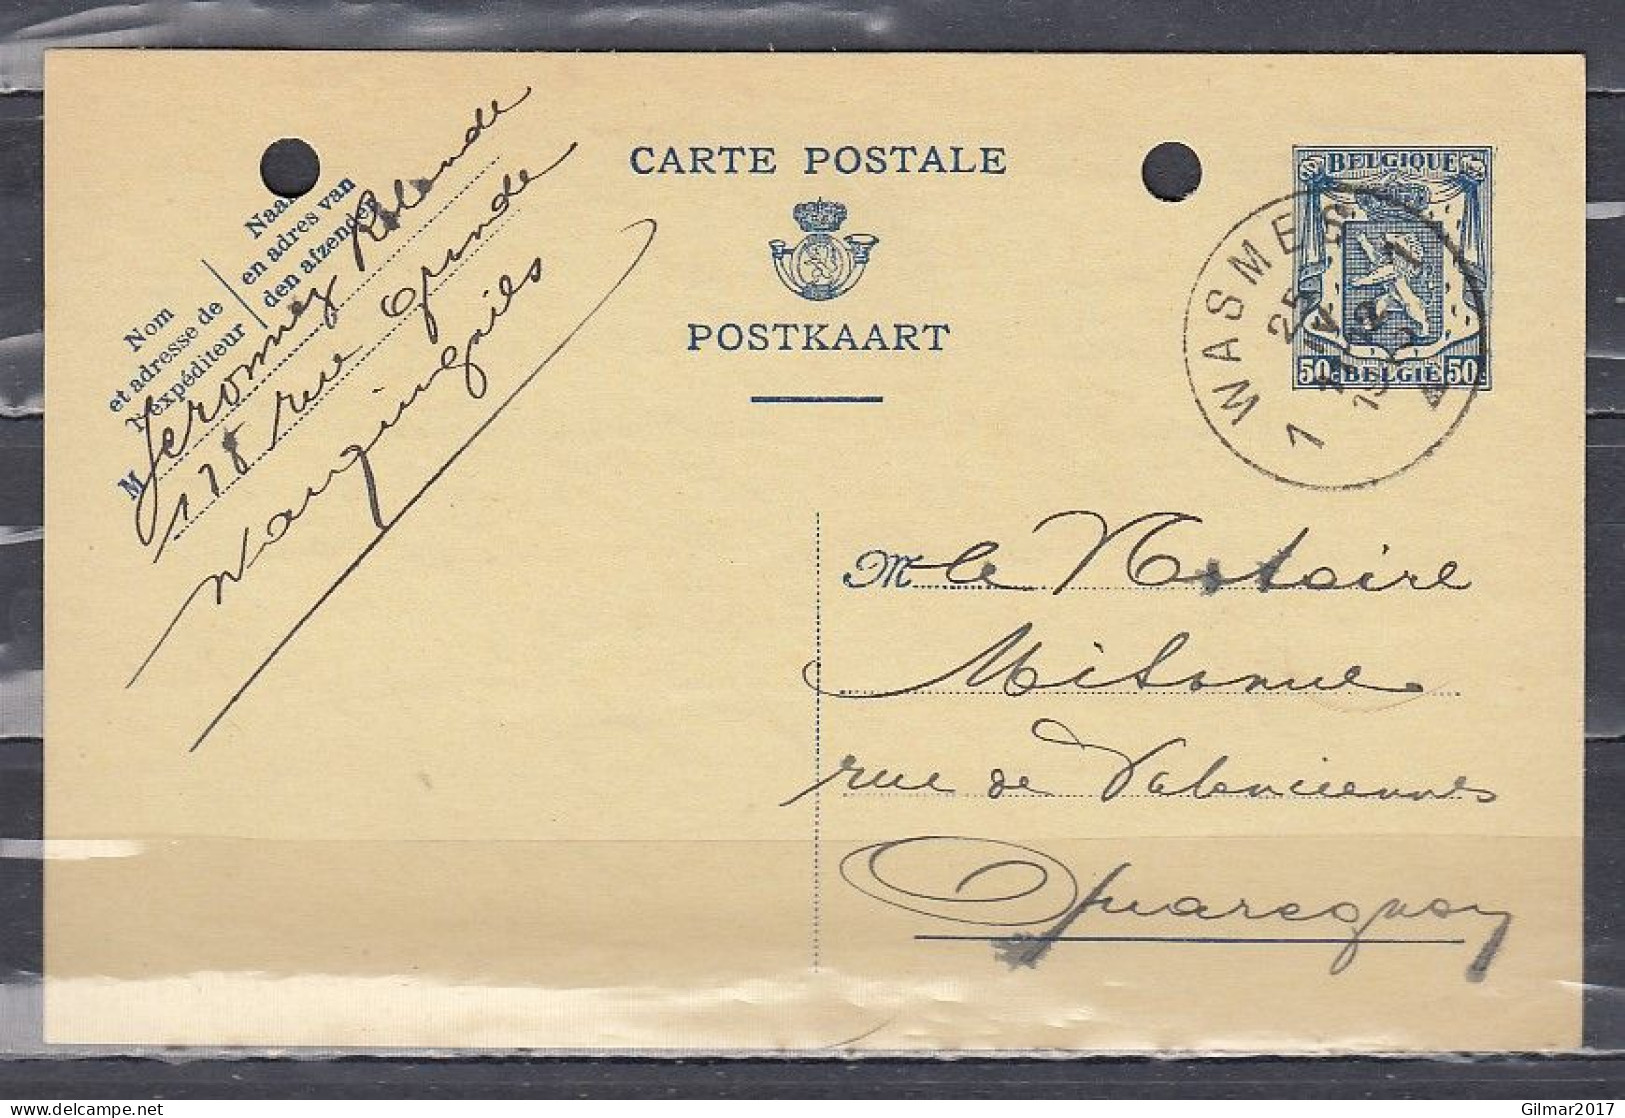 CARTE POSTALE
POSTKAART
Naam
en adres van
den afzender
Nom
et adresse de
l'expéditeur
M Jeromez Rolande
178 rue Grande
Warquignies
BELGIQUE
50c BELGIE 50c
WASMES
1
25
M le Notaire
Mitonne
rue de Valenciennes
Quaregnon
Gilmar2017